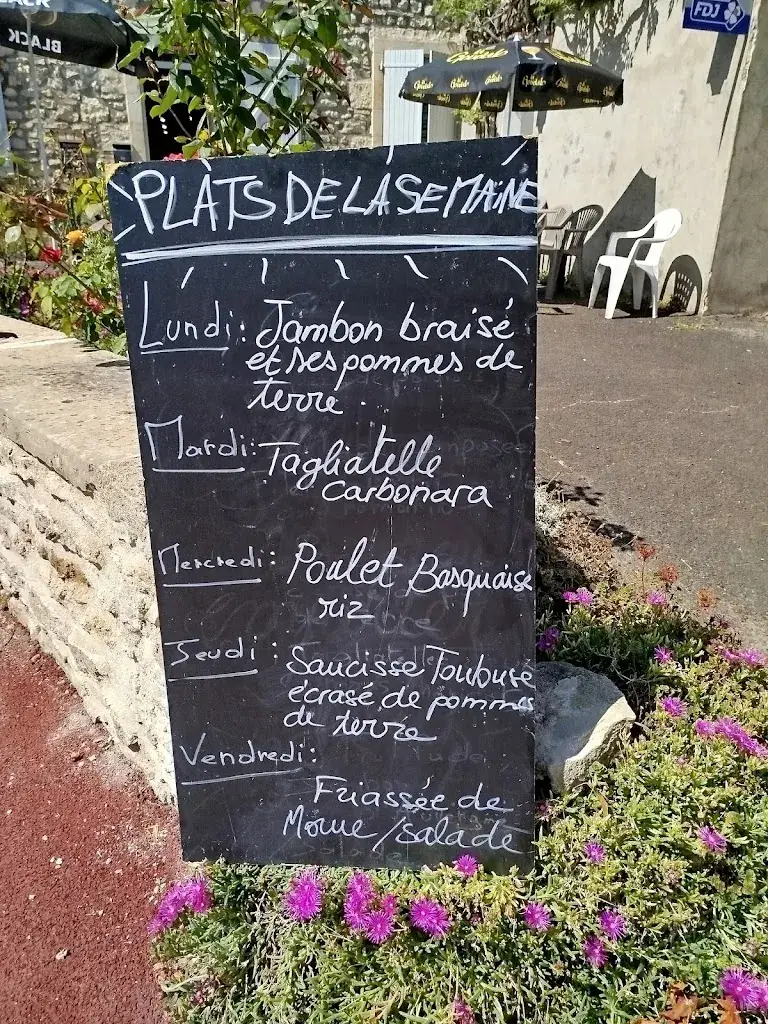 BLACK
FDJ
PLATS DE LA SEMAINE
Lundi: Jambon braisé
et ses pommes de
terre.
Mardi: Tagliatelle
Carbonara
Mercredi: Poulet Basquaise
riz
Jeudi: Saucisse Toulouse
écrasé de pommes
de terre
Vendredi:
Friassée de
Morue/salade